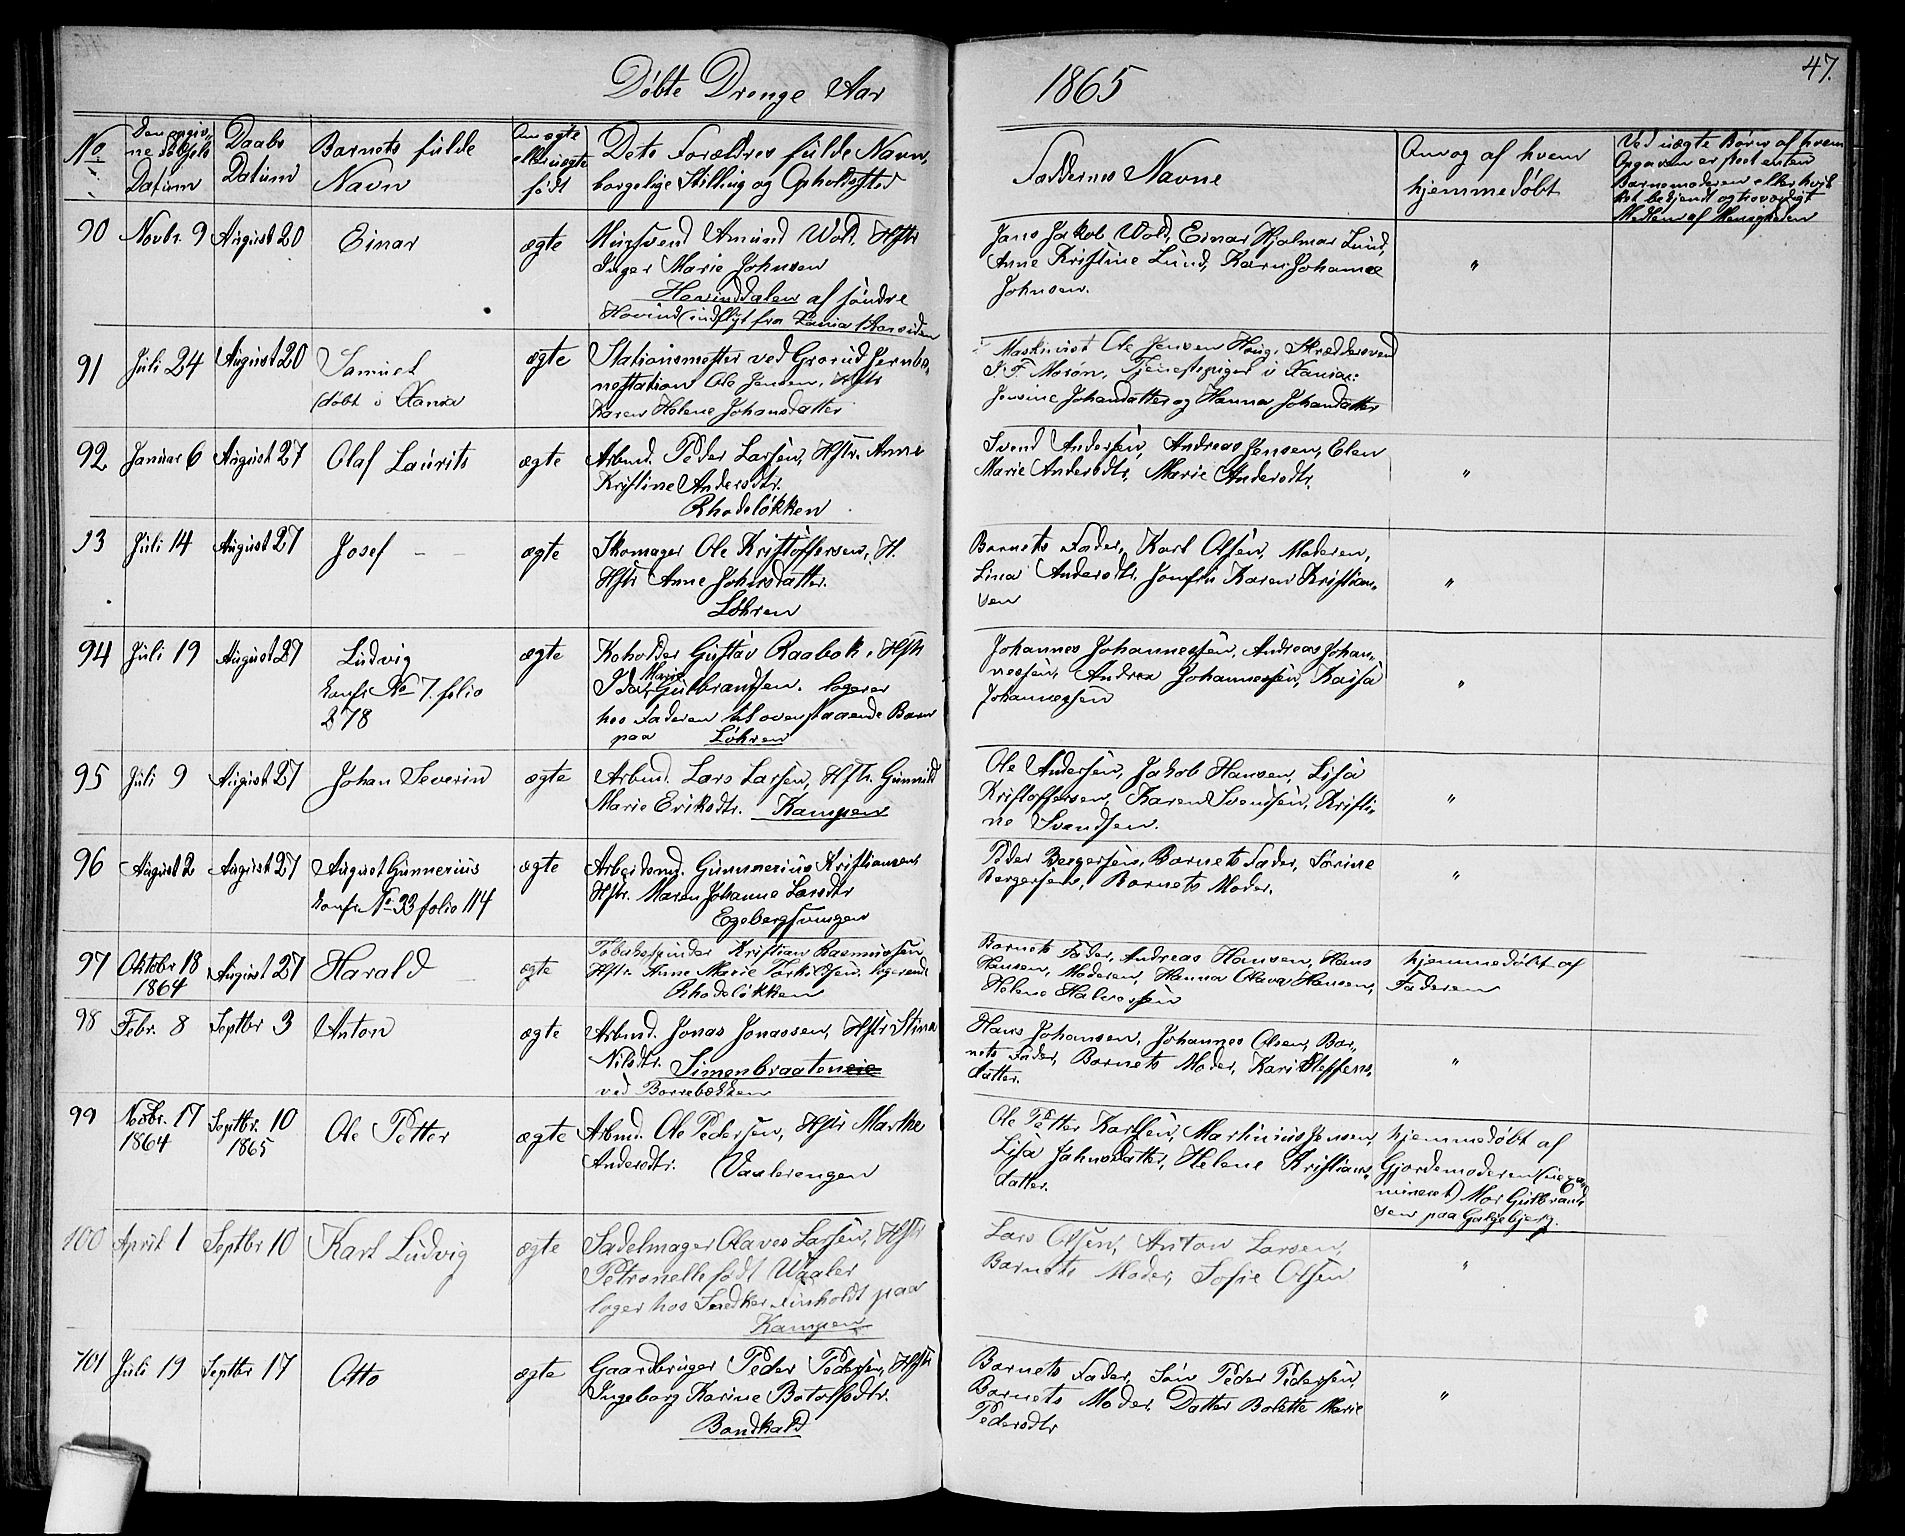 47.
Døbte Drenge Aar 1865
No
Den angiv-
ne Fødsels
Datum
Daabs
Datum
Barnets fulde
Navn
Om ægte
eller uægte
født
Dets Forældres fulde Navn,
borgelige Stilling og Opholdssted
Faddernes Navne
Om og af hvem
hjemmedøbt
Ved uægte Børn af hvem
Opgaven er skeet enten
Barnemoderen eller hvil-
ket bekjendt og troværdigt
Medlem af Menigheden
90 Novbr. 9 August 20 Einar ægte
Amund Wold. Hstr
Inger Marie Johnsen
Hovinddalen af søndre
Hovind (indflyt fra Xania
Jans Jakob Wold, Einar Hjalmar Lund,
Anne Kristine Lund, Karen Johanne
Johnsen.
"
91 Juli 24 August 20 Samuel
(døbt i Xania
ægte
Stationsmester ved Grorud Jernba-
nestation Ole Jensen, Hstr
Karen Helene Johansdatter
Maskinist Ole Jensen Houg, Skræddersvend
J. F. Moson, Tjenestepiger i Xania:
Jensine Johansdatter og Hanna Johansdatter
92 Januar 6 August 27 Olaf Laurits ægte
Arbmd. Peder Larsen, Hstr. Anne
Kristine Andersdtr.
Rhodeløkken
Svend Andersen, Andreas Jensen, Elen
Marie Andersdtr, Marie Andersdtr.
"
93 Juli 14 August 27 Josef ægte
Skomager Ole Kristoffersen, H.
Hstr Anne Johnsdatter.
Løkren
Barnets Fader, Karl Olsen, Moderen,
Lina Andersdtr. Jomfru Karen Kristian-
sen
"
94 Juli 19 August 27 Ludvig
Konfr. No 7. folio
278
ægte
Koholder Gustav Raabok, Hstr
Ida Marie Gulbrandsen. logerer
hos Faderen til ovenstaaende Barn
paa Løkren
Johannes Johannessen, Andreas Johan-
nessen, Andrea Johannessen, Kaisa
Johannessen
"
95 Juli 9 August 27 Johan Severin ægte
Arbmd. Lars Larsen, Hstr. Gunnild
Marie Eriksdtr. Kampen
Ole Andersen, Jakob Hansen, Lisa
Kristoffersen, Karen Svendsen, Kristi-
ne Svendsen.
"
96 August 2 August 27 August Gunnerius
Konfr. No 33 folio 114
ægte
Arbeidsmd. Gunnerius Kristiansen,
Hstr. Maren Johanne Larsdtr
Egebergsvingen
Peder Bergersen, Barnets Fader, Sørine
Bergersen, Barnets Moder.
"
97 Oktober 18
1864
August 27 Harald ægte
Tobakspinder Kristian Rasmussen
Hstr. Anne Marie Torkelsen. logerende
Rhodeløkken
Barnets Fader, Andreas Hansen, Hans
Hansen, Moderen, Hanna Olava Hansen,
Helene Halvorsen
hjemmedøbt af
Faderen
98 Febr. 8 Septbr 3 Anton ægte
Arbmd. Jonas Jonassen, Hstr Stina
Nilsdtr. Simenbraateneie
ved Borrebækken
Hans Johansen, Johannes Olsen, Bar-
nets Fader, Barnets Moder, Kari Steffens-
datter.
"
99 Novbr. 17
1864
Septbr. 10
1865
Ole Petter ægte
Arbmd. Ole Pedersen, Hstr Marthe
Andersdtr. Vaalerengen
Ole Petter Karlsen, Martinius Jensen,
Lisa Jahnsdatter, Helene Kristians-
datter.
hjemmedøbt af
Gjordemoderen (uexa-
mineret) Mor Gulbrand-
sen paa Galgebjerg.
100 April 1 Septbr 10 Karl Ludvig ægte
Sadelmager Olaves Larsen, Hstr
Petronelle født Waaler
loger hos Snedker Linholdt paa
Kampen
Lars Olsen, Anton Larsen,
Barnets Moder, Sofie Olsen
"
101 Juli 19 Septbr 17 Otto ægte
Gaardbruger Peder Pedersen, Hstr
Ingeborg Karine Botolfsdtr.
Bondkald
Barnets Fader, Søn Peder Pedersen,
Barnets Moder, Datter Bolette Marie
Pedersdtr
"